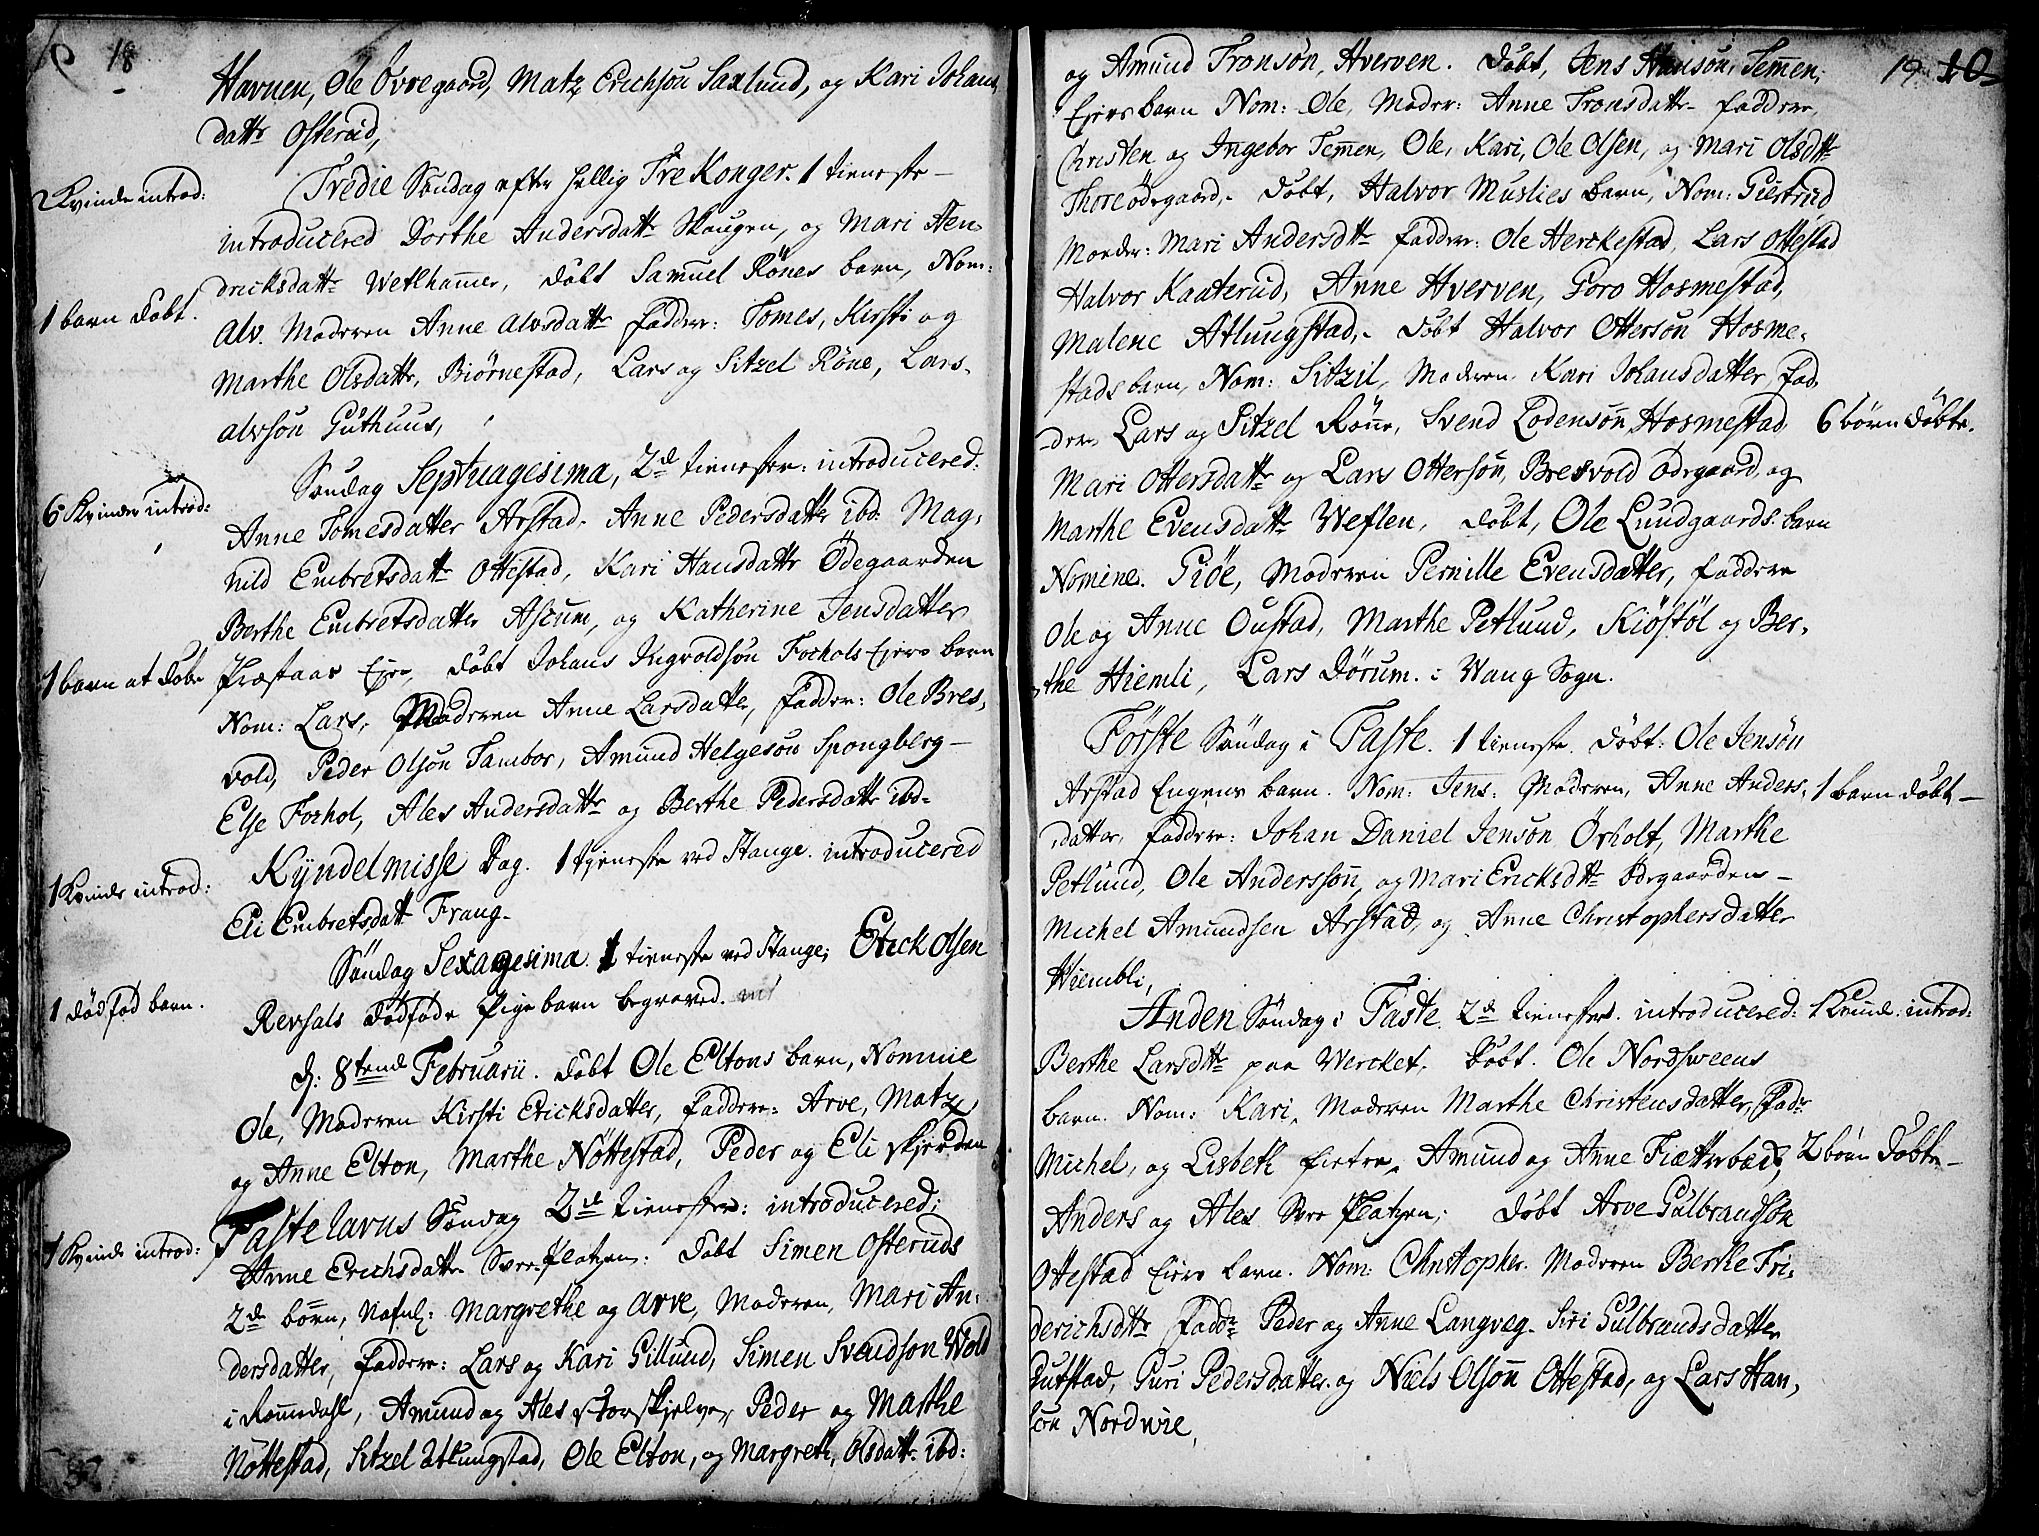 18
Havnen, Ole Övregaard, Matz Erichson Saxlund, og Kari Johans
datter Osterud,
2 Kvinde introd:
Tredie Søndag efter hellig Tre Konger. 1 tieneste
introducered Dorthe Andersdattr Skougen, og Mari Hen-
dricksdattr Wetlhammer, döbt Samuel Rönes barn, Nom:
1 barn döbt.
Alv. Moderen Anne Alvsdattr faddere: Tomes, Kirsti og
Marthe Olsdattr, Biörnestad, Lars og Sitzel Röne, Lars
alvson Guthuus,
Søndag Septuagesima, 2de tienester: introducered:
6 Kvinder introd:
Anne Tomesdatter Arstad. Anne Pedersdattr ibd: Mag-
nild Embretsdattr Ottestad, Kari Hansdattr Ödegaarden
Berthe Embretsdatter Ascum, og Katherine Jensdatter
1 barn at döbe
Præstaar Eje, döbt Johans Ingvoldsön Forhols Ejers barn
Nom: Lars, Moderen Anne Larsdatter, faddere: Ole Bres-
vold, Peder Olsön Tambor, Amund Helgeson Spongberg
Else Forhol, Ales Andersdattr og Berthe Pedersdattr ibd.
Kyndelmisse Dag. 1 tjeneste ved Stange. introducered
1 Kvinde introd:
Eli Embretsdattr Frang.
Søndag Sexagesima. 1 tieneste ved Stange; Erick Olsen
1 dödföd barn.
Revsals dödföde Pigebarn begraved.
d: 8tende Februarii. döbt Ole Eltons barn, Nomine
Ole, Moderen Kirsti Ericksdatter, faddere: Arve, Matz
og Anne Elton, Marthe Nöttestad, Peder og Eli Skjerden
Fastelavns Søndag 2de tienester: introducered:
1 Kvinde introd:
Anne Erichsdatter Svee-Platzen: döbt Simen Osteruds
2de börn, Nafnl: Margrethe og Arve, Moderen, Mari An-
dersdatter, faddere: Lars og Kari Gillund, Simen Svendson Wold
i Romedahl, Amund og Ales Storskjelve, Peder og Marthe
Nöttestad, Sitzel Atlungstad, Ole Elton, og Margreth Olsdattr ibd:
19 10
og Amund Tronsön, Hverven. döbt, Jens Hansön, Temmen,
Ejers barn Nom: Ole, Moder: Anne Tronsdattr faddere,
Christen og Ingebor Temmen, Ole, Kari, Ole Olsen, og Mari Olsdttr
Thoreödegaard. döbt, Halvor Muslies barn, Nom: Giertrud
Moder: Mari Andersdttr faddere: Ole Herckestad, Lars Ottestad
Halvor Kaaterud, Anne Hverven, Goro Hosmestad,
Malene Atlungstad. döbt Halvor Ottersön Hosme-
stads barn, Nom: Sitzil, Moderen Kari Johansdatter, fad-
dere Lars og Sitzel Rönne, Svend Lodensön Hosmestad
6 börn döbte.
Mari Ottersdattr og Lars Ottersön, Bresvold Ödegaard, og
Marthe Evensdattr Weflen, döbt, Ole Lundgaards barn
Nomine. Giöe, Moderen Pernille Evensdatter, faddere
Ole og Anne Oustad, Marthe Petlund, Kiöstöl og Ber-
the Hiemli, Lars Dörum. i Wang Sogn.
Förste Søndag i Faste. 1 tieneste. döbt: Ole Jensön
Arstad Engens barn. Nom: Jens: Moderen, Anne Anders-
1 barn döbt
datter, faddere: Johan Daniel Jenson Örholt, Marthe
Petlund, Ole Andersson, og Mari Ericksdttr Ödegaarden
Michel Amundsen Arstad, og Anne Christophersdatter
Hiembli,
Anden Søndag i Faste. 2de tienester. introducered:
1 Kvinde: introd:
Berthe Larsdttr paa Wercket. Döbt. Ole Nordsweens
barn. Nom: Kari, Moderen Marthe Christensdatter, Fadr
Michel, og Lisbeth Amund og Anne
2 börn döbte
Anders og Ales Svee Platzen; Döbt Arve Gulbrandsön
Ottestad Ejers barn. Nom: Christopher. Moderen Berthe Fri-
derichsdttr Faddr Peder og Anne Langveg. Siri Gulbrandsdatter
Gutstad, Guri Pedersdatter og Niels Olsön Ottestad, og Lars Han-
sön Nordwie,